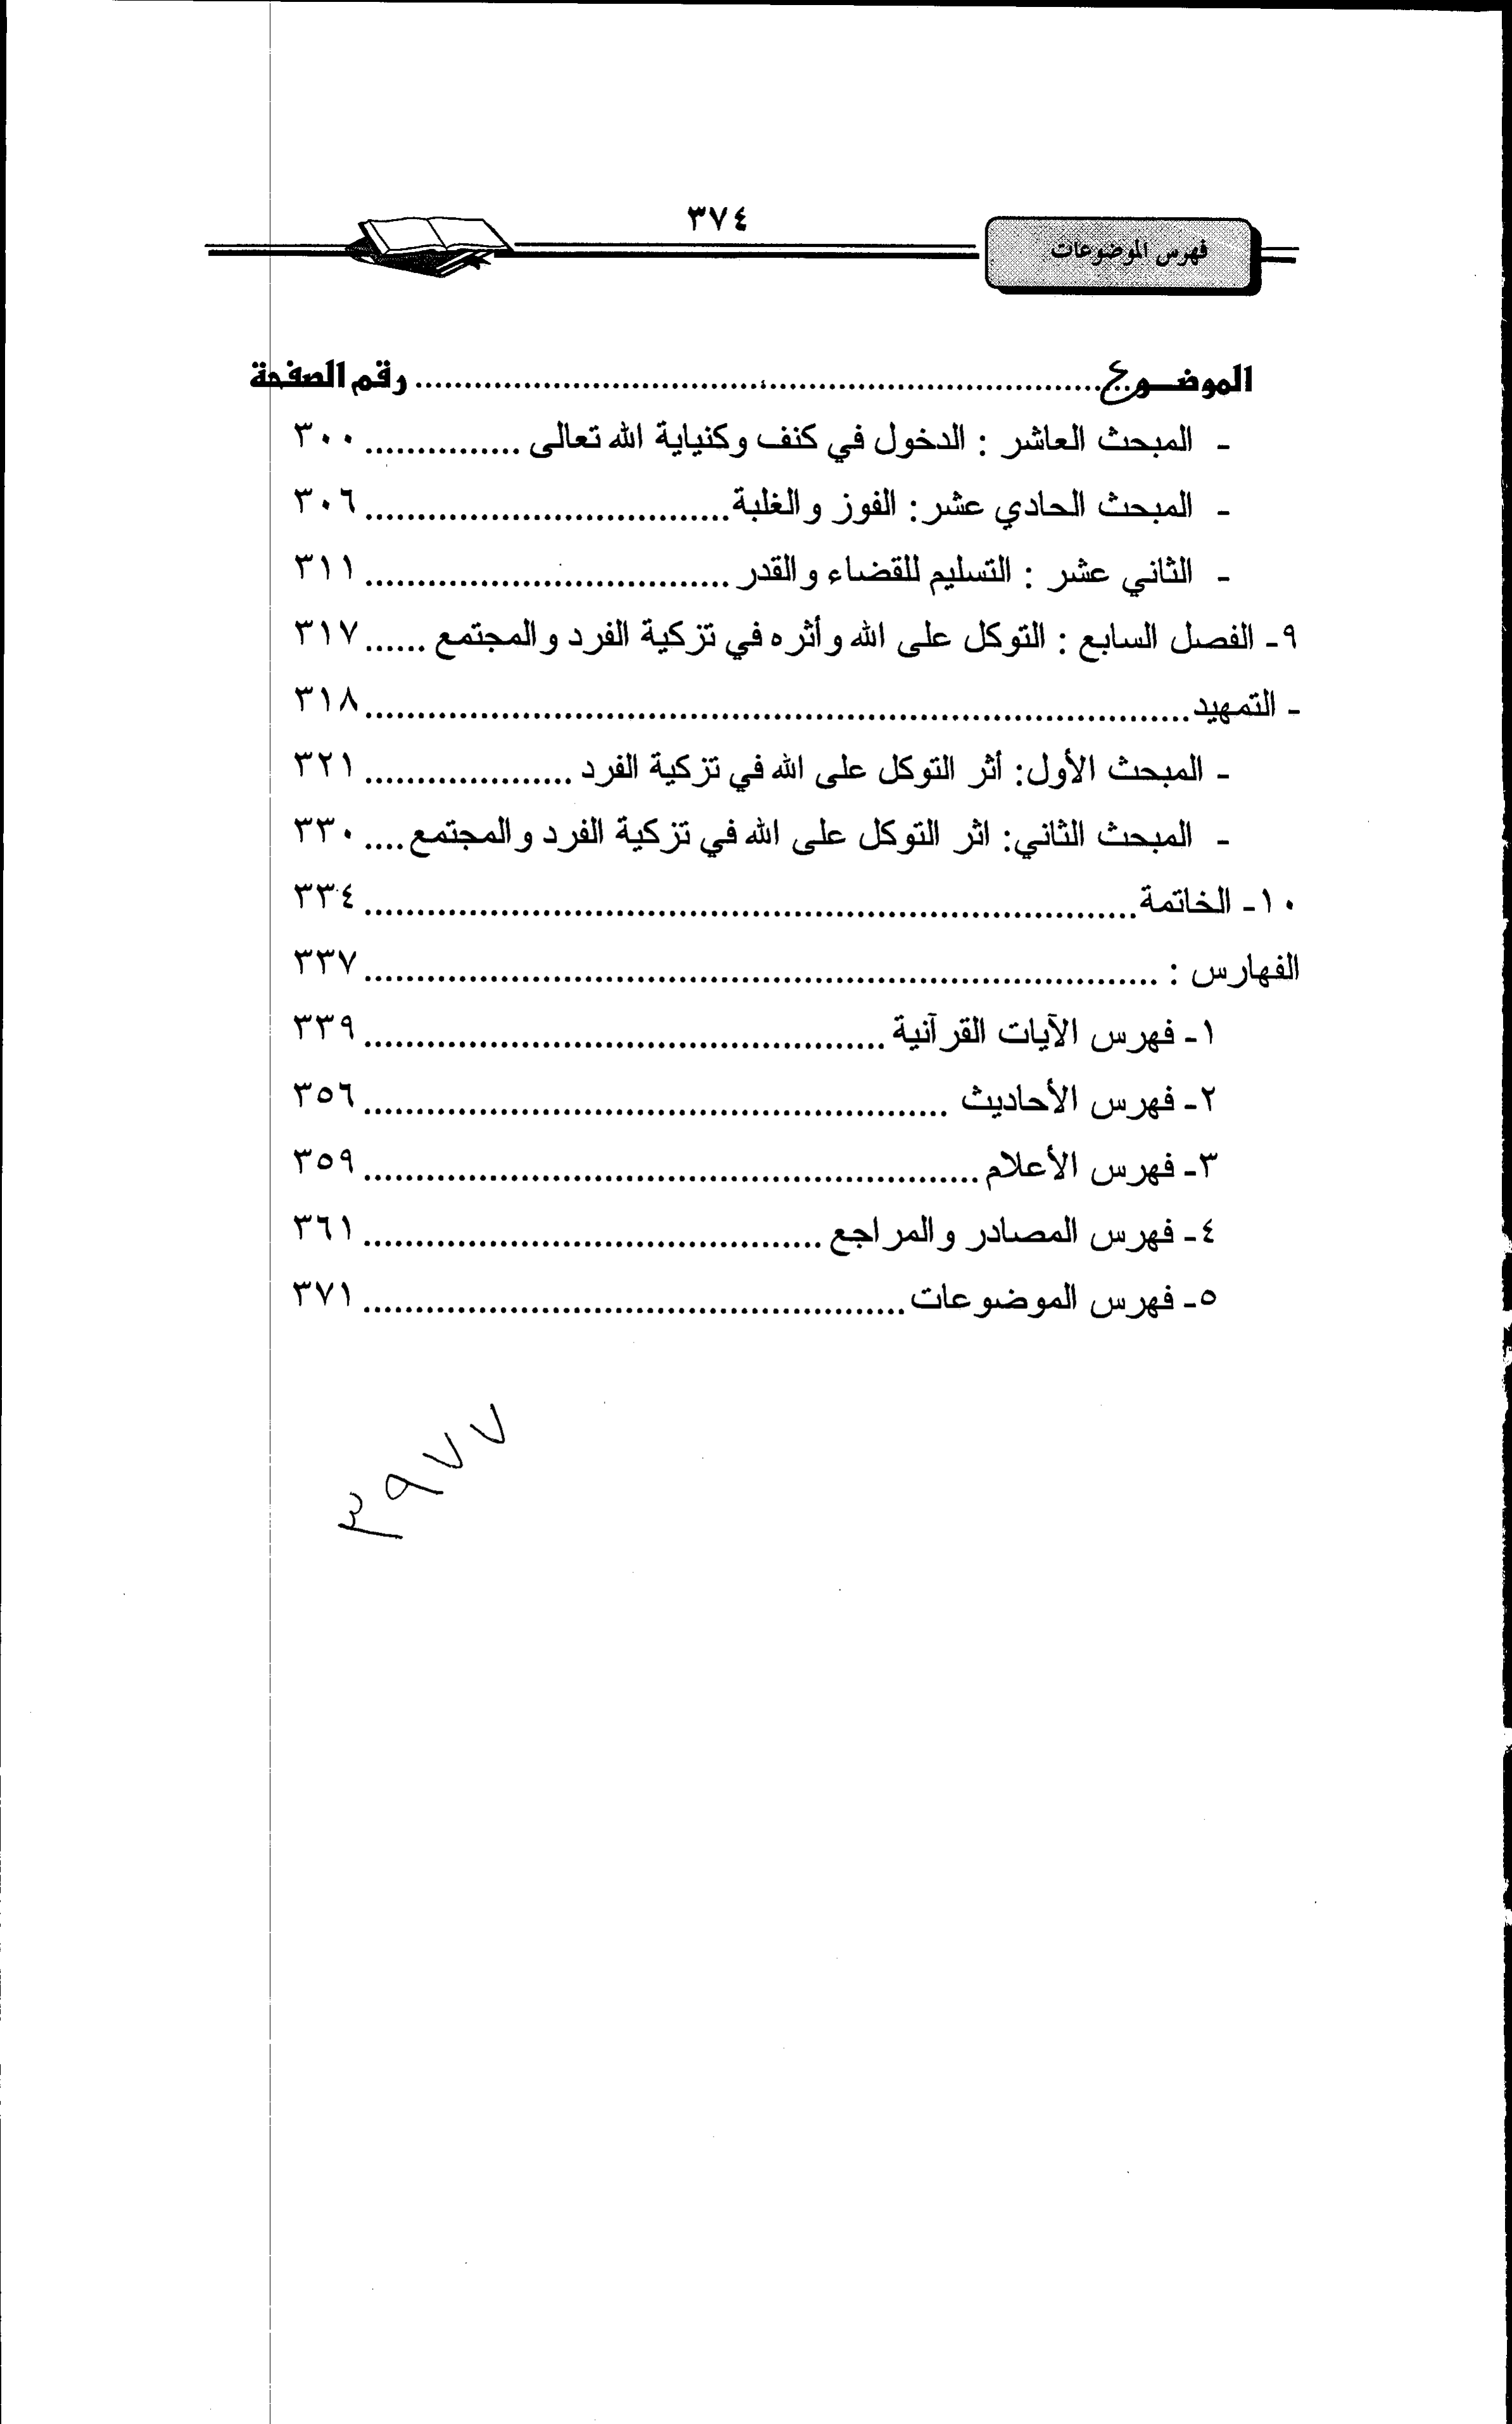 ٣٧٤
فهرس الموضوعات
الموضـــوع ........................................................................ رقم الصفحة
- المبحث العاشر : الدخول في كنف وكنياية الله تعالى ............... ٣٠٠
- المبحث الحادي عشر: الفوز والغلبة................................... ٣٠٦
- الثاني عشر : التسليم للقضاء والقدر ................................... ٣١١
٩- الفصل السابع : التوكل على الله وأثره في تزكية الفرد والمجتمع ...... ٣١٧
- التمهيد............................................................................... ٣١٨
- المبحث الأول: أثر التوكل على الله في تزكية الفرد .................... ٣٢١
- المبحث الثاني: اثر التوكل على الله في تزكية الفرد والمجتمع .... ٣٣٠
١٠- الخاتمة.......................................................................... ٣٣٤
الفهارس : ............................................................................ ٣٣٧
١- فهرس الآيات القرآنية .................................................. ٣٣٩
٢- فهرس الأحاديث ........................................................ ٣٥٦
٣- فهرس الأعلام ........................................................... ٣٥٩
٤- فهرس المصادر والمراجع ............................................ ٣٦١
٥- فهرس الموضوعات.................................................... ٣٧١
٣٩٧٧